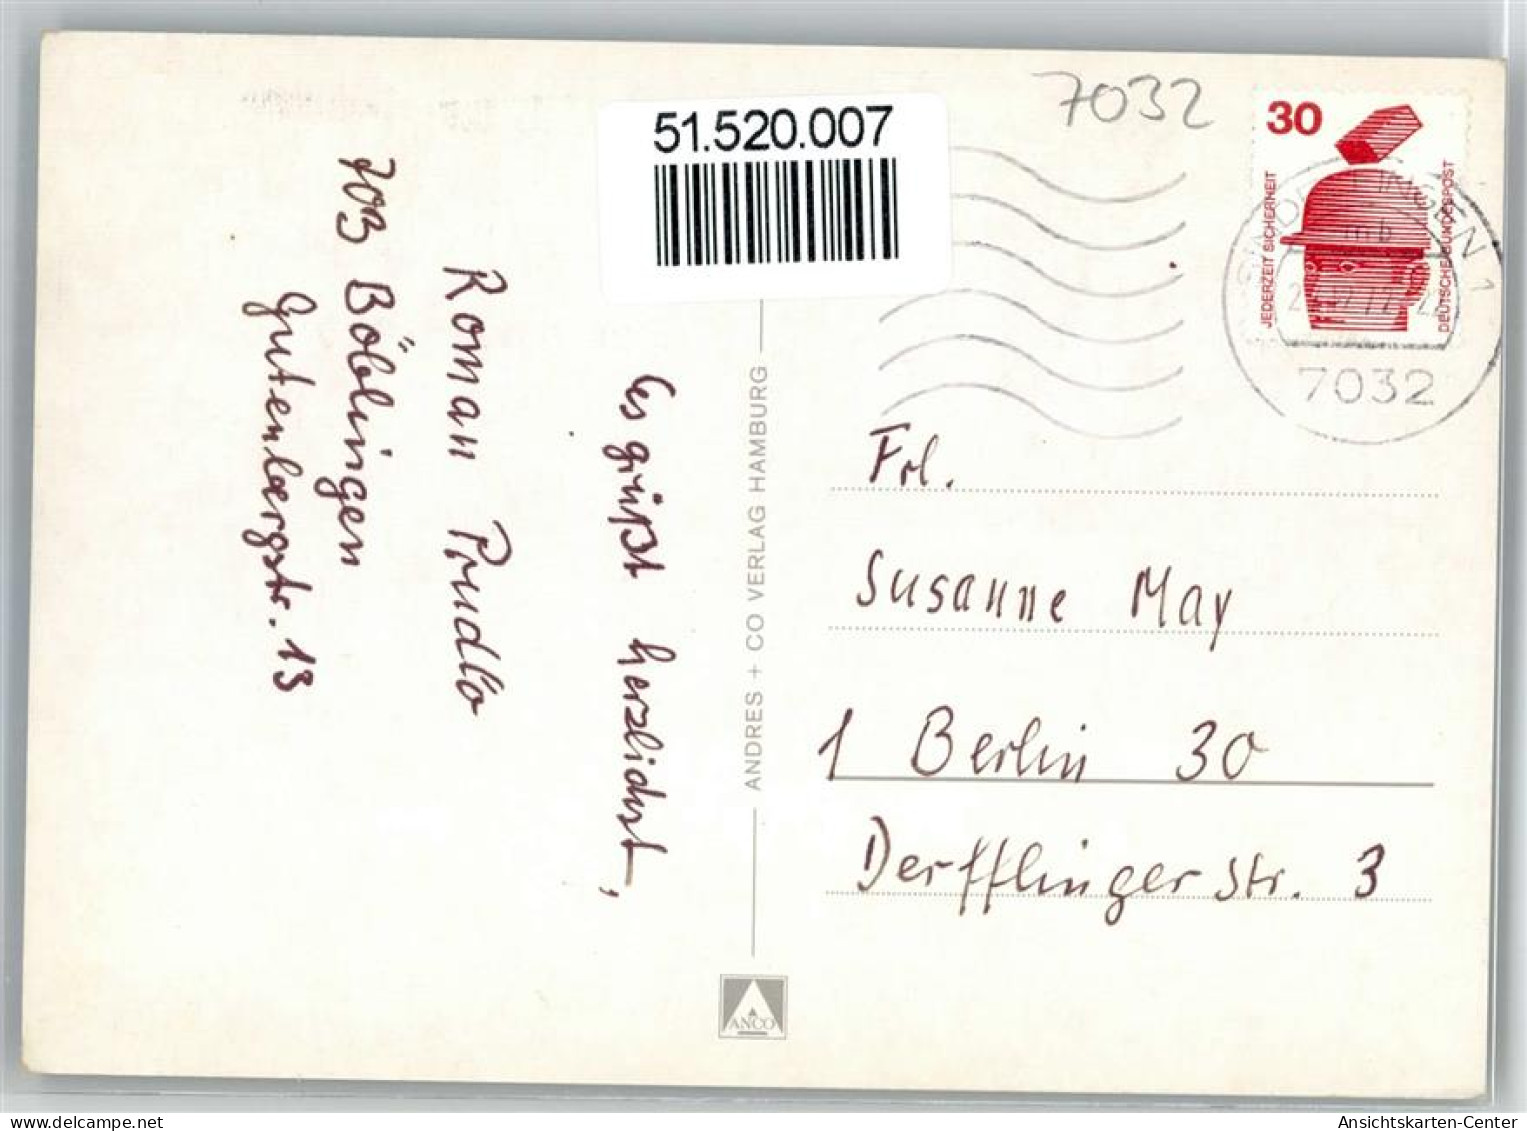 51.520.007
7032
30
JEDERZEIT SICHERHEIT
DEUTSCHE BUNDESPOST
INGEN 1
mb
7032
Es grüßt herzlichst,
Roman Prudlo
703 Böblingen
Gutenbergstr. 13
ANDRES + CO VERLAG HAMBURG
Frl.
Susanne May
1 Berlin 30
Derfflinger str. 3
ANCO
delcampe.net
Ansichtskarten-Center